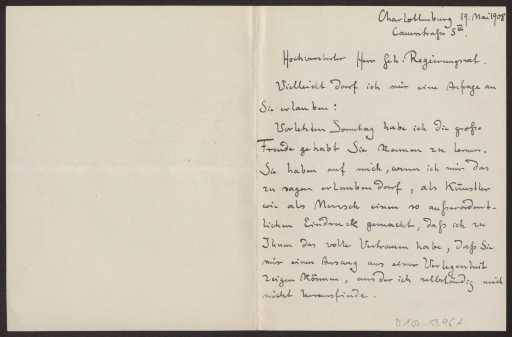 Charlottenburg 19. Mai 1908
Cauerstraße 5 III.
Hochverehrter Herr Geh. Regierungsrat.
Vielleicht darf ich mir eine Anfrage an
Sie erlauben:
Vorletzten Sonntag habe ich die große
Freude gehabt Sie kennen zu lernen.
Sie haben auf mich, wenn ich mir das
zu sagen erlauben darf, als Künstler
wie als Mensch einen so außerordent-
lichen Eindruck gemacht, daß ich zu
Ihnen das volle Vertrauen habe, daß Sie
mir einen Ausweg aus einer Verlegenheit
zeigen können, aus der ich selbständig mich
nicht herausfinde.